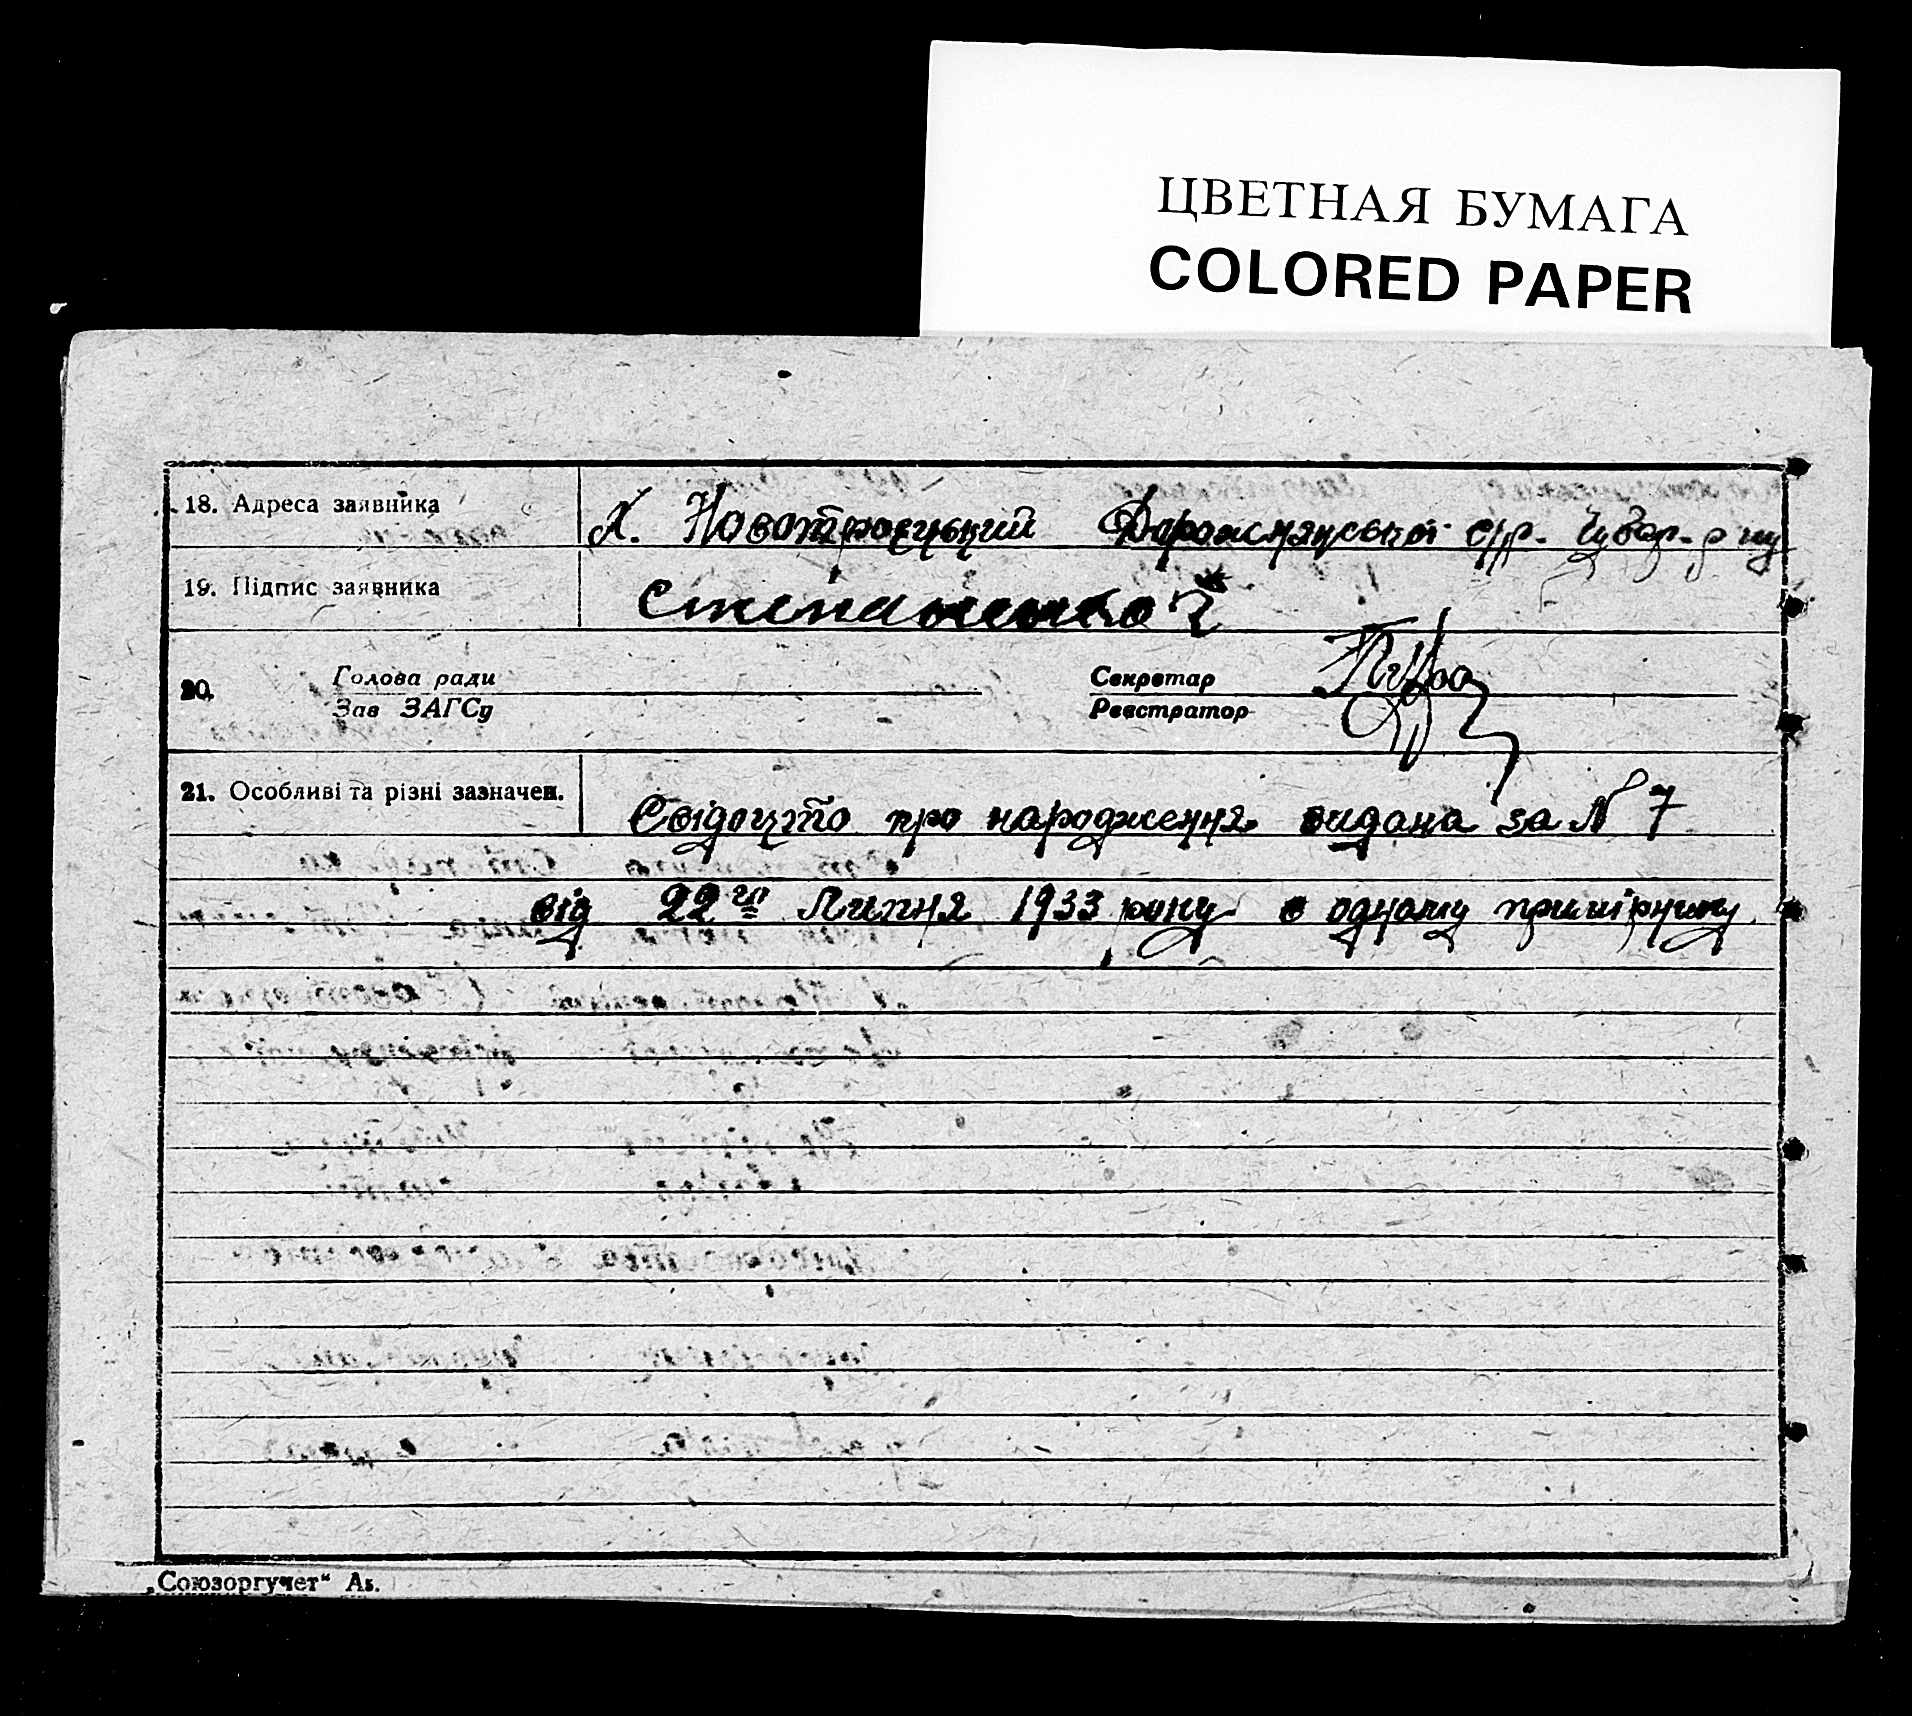 ЦВЕТНАЯ БУМАГА
COLORED PAPER
18. Адреса заявника
Х. Новотроєцький Дорожнянської с/р. Чубар. р-ну
19. Підпис заявника
Степаненко
20. Голова ради
Зав ЗАГСу
Секретар
Реєстратор
21. Особливі та різні зазначен.
Свідоцтво про народження видана за № 7
від 22го Липня 1933 року в одному примірнику
„Союзоргучет“ Аз.